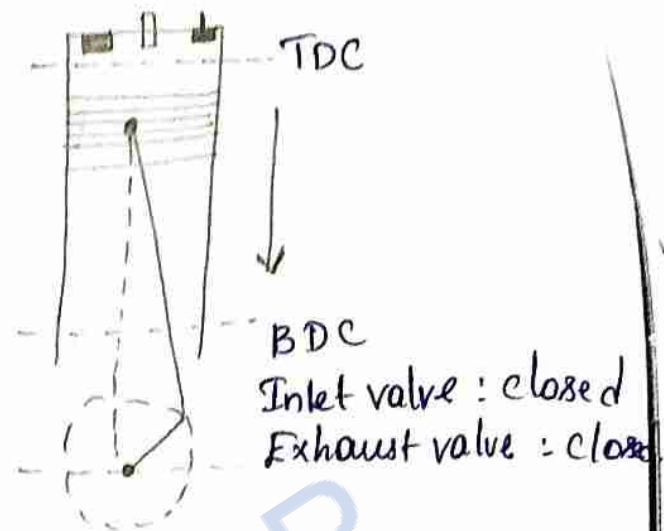 TDC
BDC
Inlet valve : closed
Exhaust valve : close